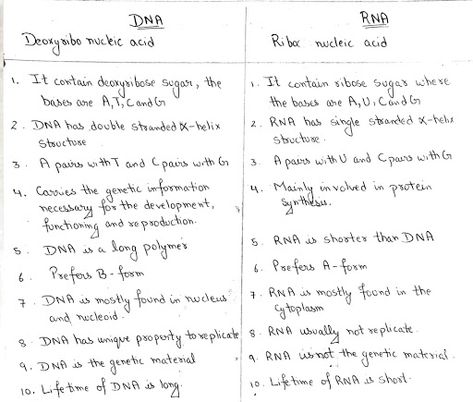 DNA
Deoxyribo nucleic acid
1. It contain deoxyribose sugar, the
bases are A,T,C and G
2. DNA has double stranded α-helix
structure
3. A pairs with T and C pairs with G
4. Carries the genetic information
necessary for the development,
functioning and reproduction.
5. DNA is a long polymer
6. Prefers B-form
7. DNA is mostly found in nucleus
and nucleoid.
8. DNA has unique property to replicate
9. DNA is the genetic material
10. Lifetime of DNA is long.
RNA
nucleic acid
1. It contain ribose sugar where
the bases are A,U,C and G
2. RNA has single stranded α-helix
structure.
3. A pairs with U and C pairs with G
4. Mainly involved in protein
synthesis.
5. RNA is shorter than DNA
6. Prefers A-form
7. RNA is mostly found in the
cytoplasm
8. RNA usually not replicate.
9. RNA is not the genetic material.
10. Lifetime of RNA is short.